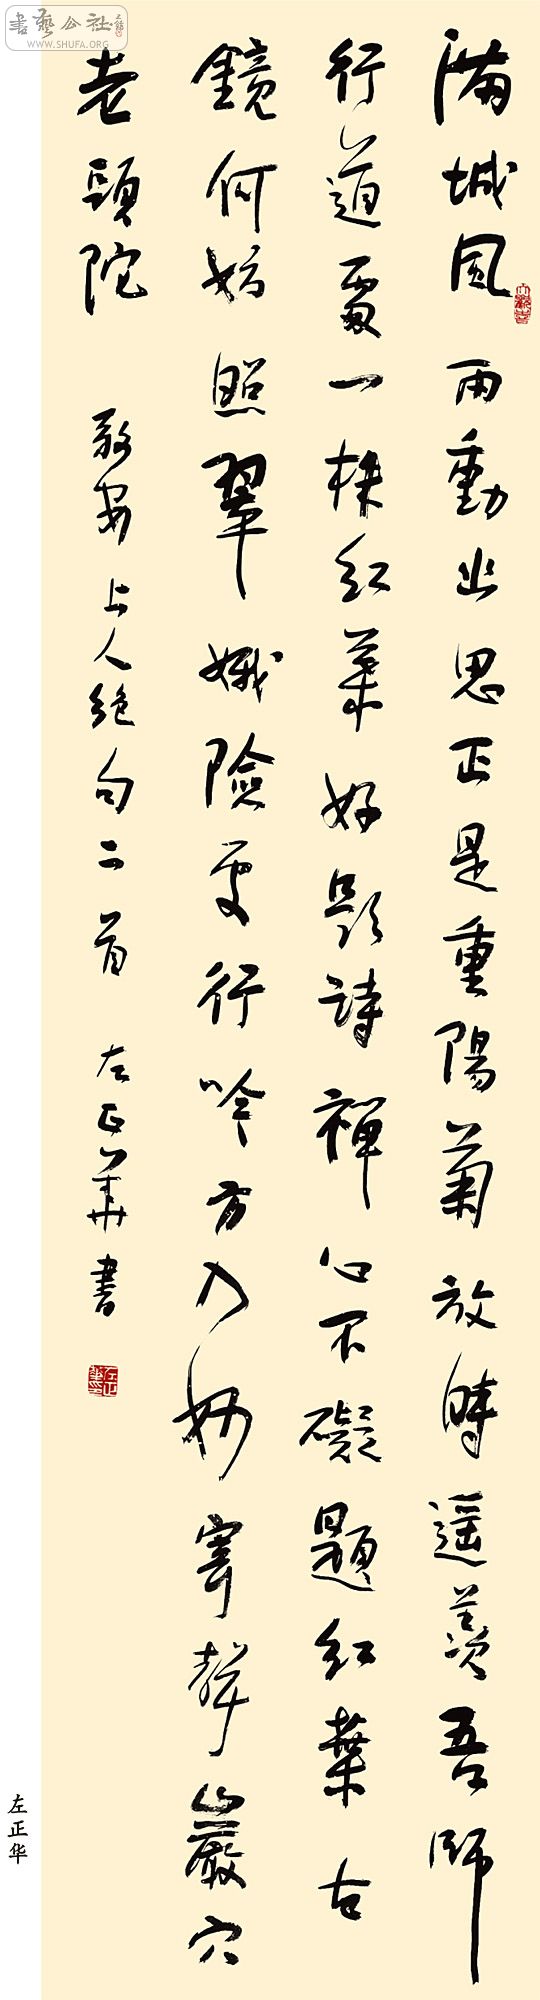 書藝公社
WWW.SHUFA.ORG
滿城風雨動幽思正是重陽菊放時遥羡吾師
行道處一株紅葉好題詩禪心不礙題紅葉古
鏡何妨照翠娥險處行吟方入妙寄聲巖穴
老頭陀 敬安上人絕句二首 左正華書
左正华